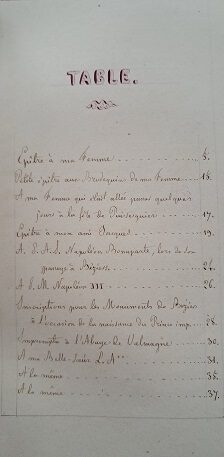 TABLE.
Epître à ma Femme 5.
Petite épître aux Brodequins de ma Femme 15.
A ma Femme qui était allée passer quelques
jours à la fête de Puisserguier 17.
Epître à mon ami Jacques 19.
A. S. A. I. Napoléon Bonaparte, lors de son
passage à Béziers 24.
A S. M. Napoléon III 26.
Inscriptions pour les Monuments de Béziers
à l'occasion de la naissance du Prince imp. 28.
Impromptu à l'Abbaye de Valmagne 30.
A ma Belle-Sœur L. A** 31.
A la même 35.
A la même 37.